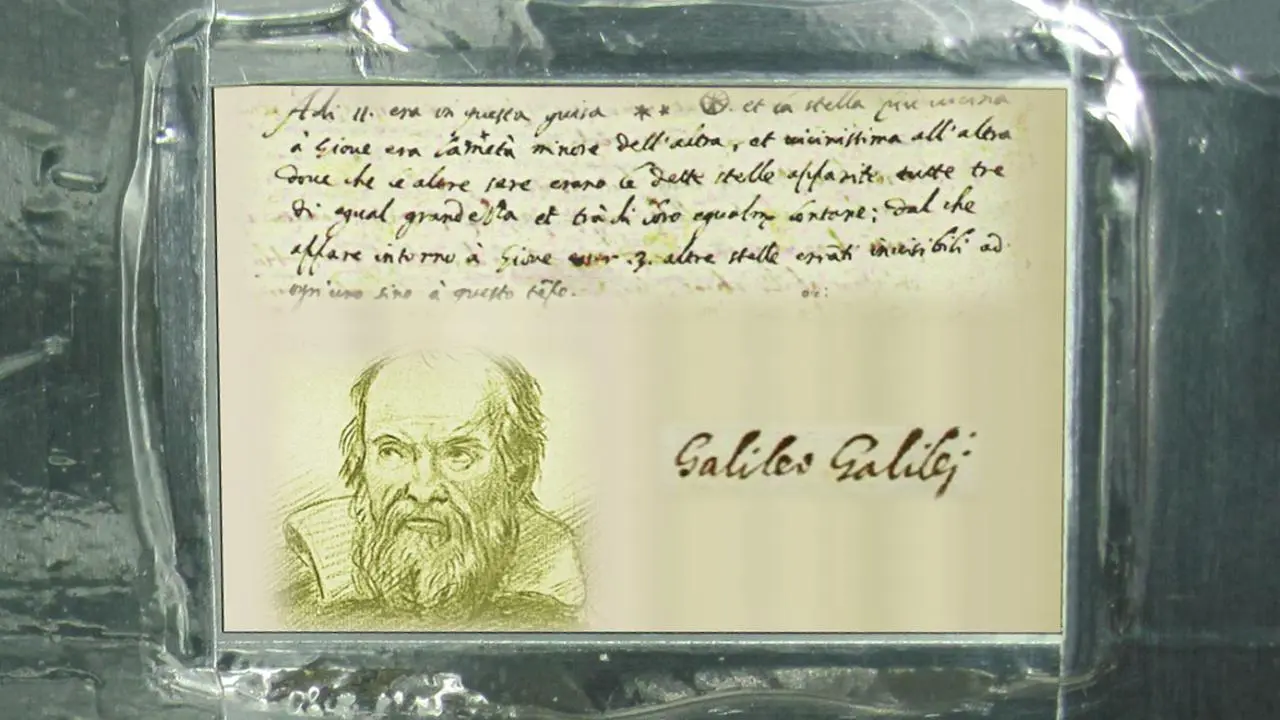 Adi 11. era in questa guisa ** et la stella più vicina
à Giove era la metà minore dell'altra, et vicinissima all'altra
dove che le altre sere erano le dette stelle apparite tutte tre
di egual grandezza et trà di loro egualm lontane; dal che
appare intorno à Giove esser .3. altre stelle erranti invisibili ad
ogni uno sino à questo tẽpo.
Galileo Galilej